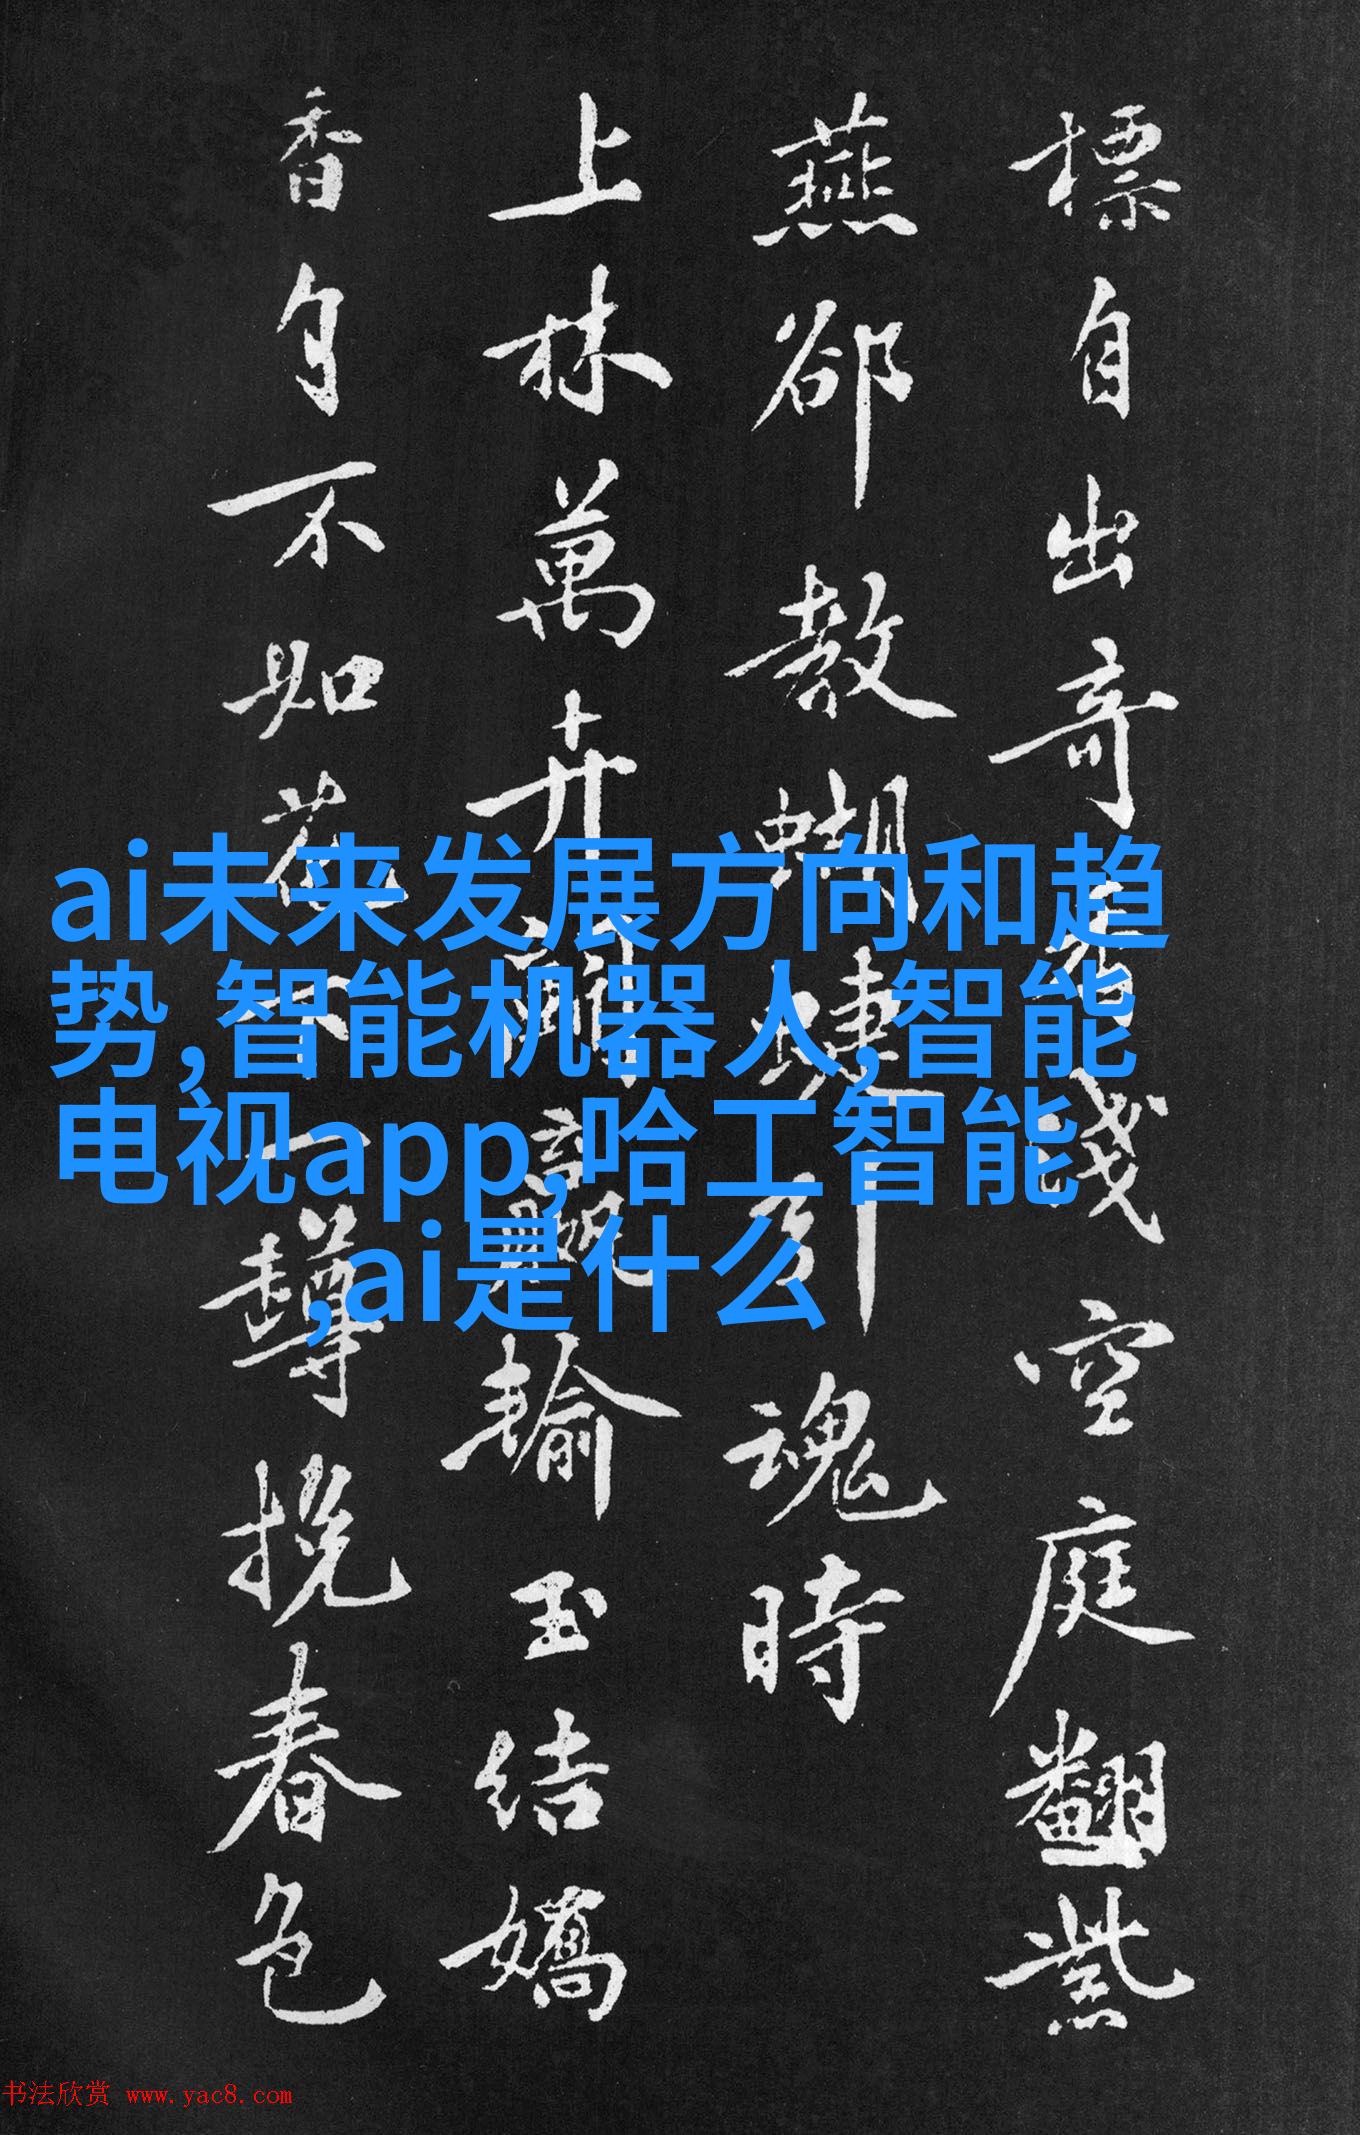 標自出奇𠃔淺空庭翻紫
燕郤教蝴蝶引魂時
上林萬卉爾讓輸玉結嬌
香自不如花下一樽挽春色
ai未来发展方向和趋
势,智能机器人,智能
电视app,哈工智能
,ai是什么
书法欣赏 www.yac8.com